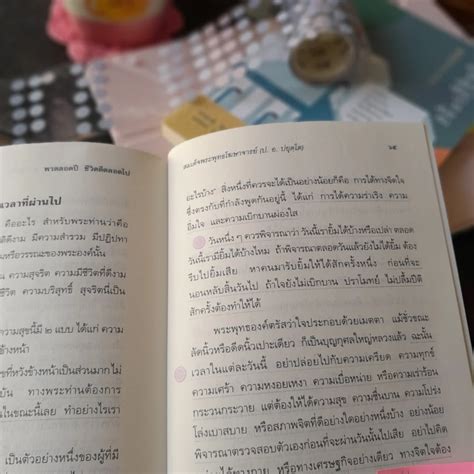 พาตลอดปี ชีวิตดีตลอดไป
เวลาที่ผ่านไป
คืออะไร สำหรับพระท่านว่าคือ
มีความสำรวม มีปฏิปทา
หรืออรรถของพระองค์นั้น
ความสุจริต ความมีชีวิตที่ดีงาม
ชีวิต ความบริสุทธิ์ สุจริตนี่เป็น
ความสุขนี้มี ๒ แบบ ได้แก่ ความ
ข้างหน้า
ที่หวังข้างหน้าเป็นส่วนมากไม่
บัน ทางพระท่านต้องการ
ในขณะนี้เลย ทำอย่างไรเรา
เป็นตัวอย่างหนึ่งของผู้ที่มี
สมเด็จพระพุทธโฆษาจารย์ (ป. อ. ปยุตฺโต)
อะไรบ้าง" สิ่งหนึ่งที่ควรจะได้เป็นอย่างน้อยก็คือ การได้ทางจิตใจ
ซึ่งตรงกับที่กำลังพูดกันอยู่นี้ ได้แก่ การได้ความร่าเริง ความ
ยิ้มใจ และความเบิกบานผ่องใส
วันหนึ่ง ๆ ควรพิจารณาว่า วันนี้เรายิ้มได้บ้างหรือเปล่า ตลอด
วันนี้เรายิ้มได้บ้างไหม ถ้าพิจารณาตลอดวันแล้วยังไม่ได้ยิ้ม ต้อง
รีบไปยิ้มเสีย หาคนมารับยิ้มให้ได้สักครั้งหนึ่ง ก่อนที่จะ
นอนหลับสิ้นวันไป ถ้าใจยังไม่เบิกบาน ปราโมทย์ ไม่ปลื้มปีติ
สักครั้งต้องทำให้ได้
พระพุทธองค์ตรัสว่าใจประกอบด้วยเมตตา แม้ชั่วขณะ
ลัดนิ้วหรือดีดนิ้วเปาะเดียว ก็เป็นบุญกุศลใหญ่หลวงแล้ว ฉะนั้น
เวลาในแต่ละวันนี้ อย่าปล่อยไปกับความเครียด ความทุกข์
ความเศร้า ความหงอยเหงา ความเบื่อหน่าย หรือความเร่าร้อน
กระวนกระวาย แต่ต้องให้ได้ความสุข ความชื่นบาน ความโปร่ง
โล่งเบาสบาย หรือสภาพจิตที่ดีอย่างใดอย่างหนึ่งบ้าง อย่างน้อย
พิจารณาตรวจสอบตัวเองก่อนที่จะผ่านวันนั้นไปเสีย อย่าไปคิด
ทางเศรษฐกิจอย่างเดียว ทางจิตใจ